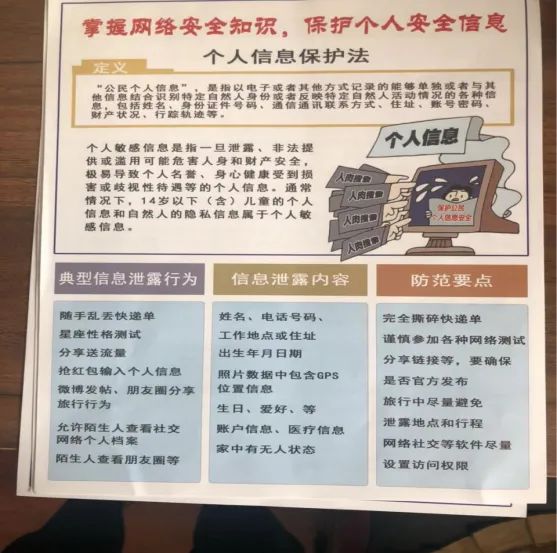 掌握网络安全知识，保护个人安全信息
个人信息保护法
定义
“公民个人信息”，是指以电子或者其他方式记录的能够单独或者与其
他信息结合识别特定自然人身份或者反映特定自然人活动情况的各种信
息，包括姓名、身份证件号码、通信通讯联系方式、住址、账号密码、
财产状况、行踪轨迹等。
个人敏感信息是指一旦泄露、非法提
供或滥用可能危害人身和财产安全，
极易导致个人名誉、身心健康受到损
害或歧视性待遇等的个人信息。通常
情况下，14岁以下（含）儿童的个人
信息和自然人的隐私信息属于个人敏
感信息。
个人信息
人肉搜索
人肉搜索
人肉搜索
人肉搜索
保护公民
个人信息安全
典型信息泄露行为
随手乱丢快递单
星座性格测试
分享送流量
抢红包输入个人信息
微博发帖、朋友圈分享
旅行行为
允许陌生人查看社交
网络个人档案
陌生人查看朋友圈等
信息泄露内容
姓名、电话号码、
工作地点或住址
出生年月日期
照片数据中包含GPS
位置信息
生日、爱好、等
账户信息、医疗信息
家中有无人状态
防范要点
完全撕碎快递单
谨慎参加各种网络测试
分享链接等，要确保
是否官方发布
旅行中尽量避免
泄露地点和行程
网络社交等软件尽量
设置访问权限